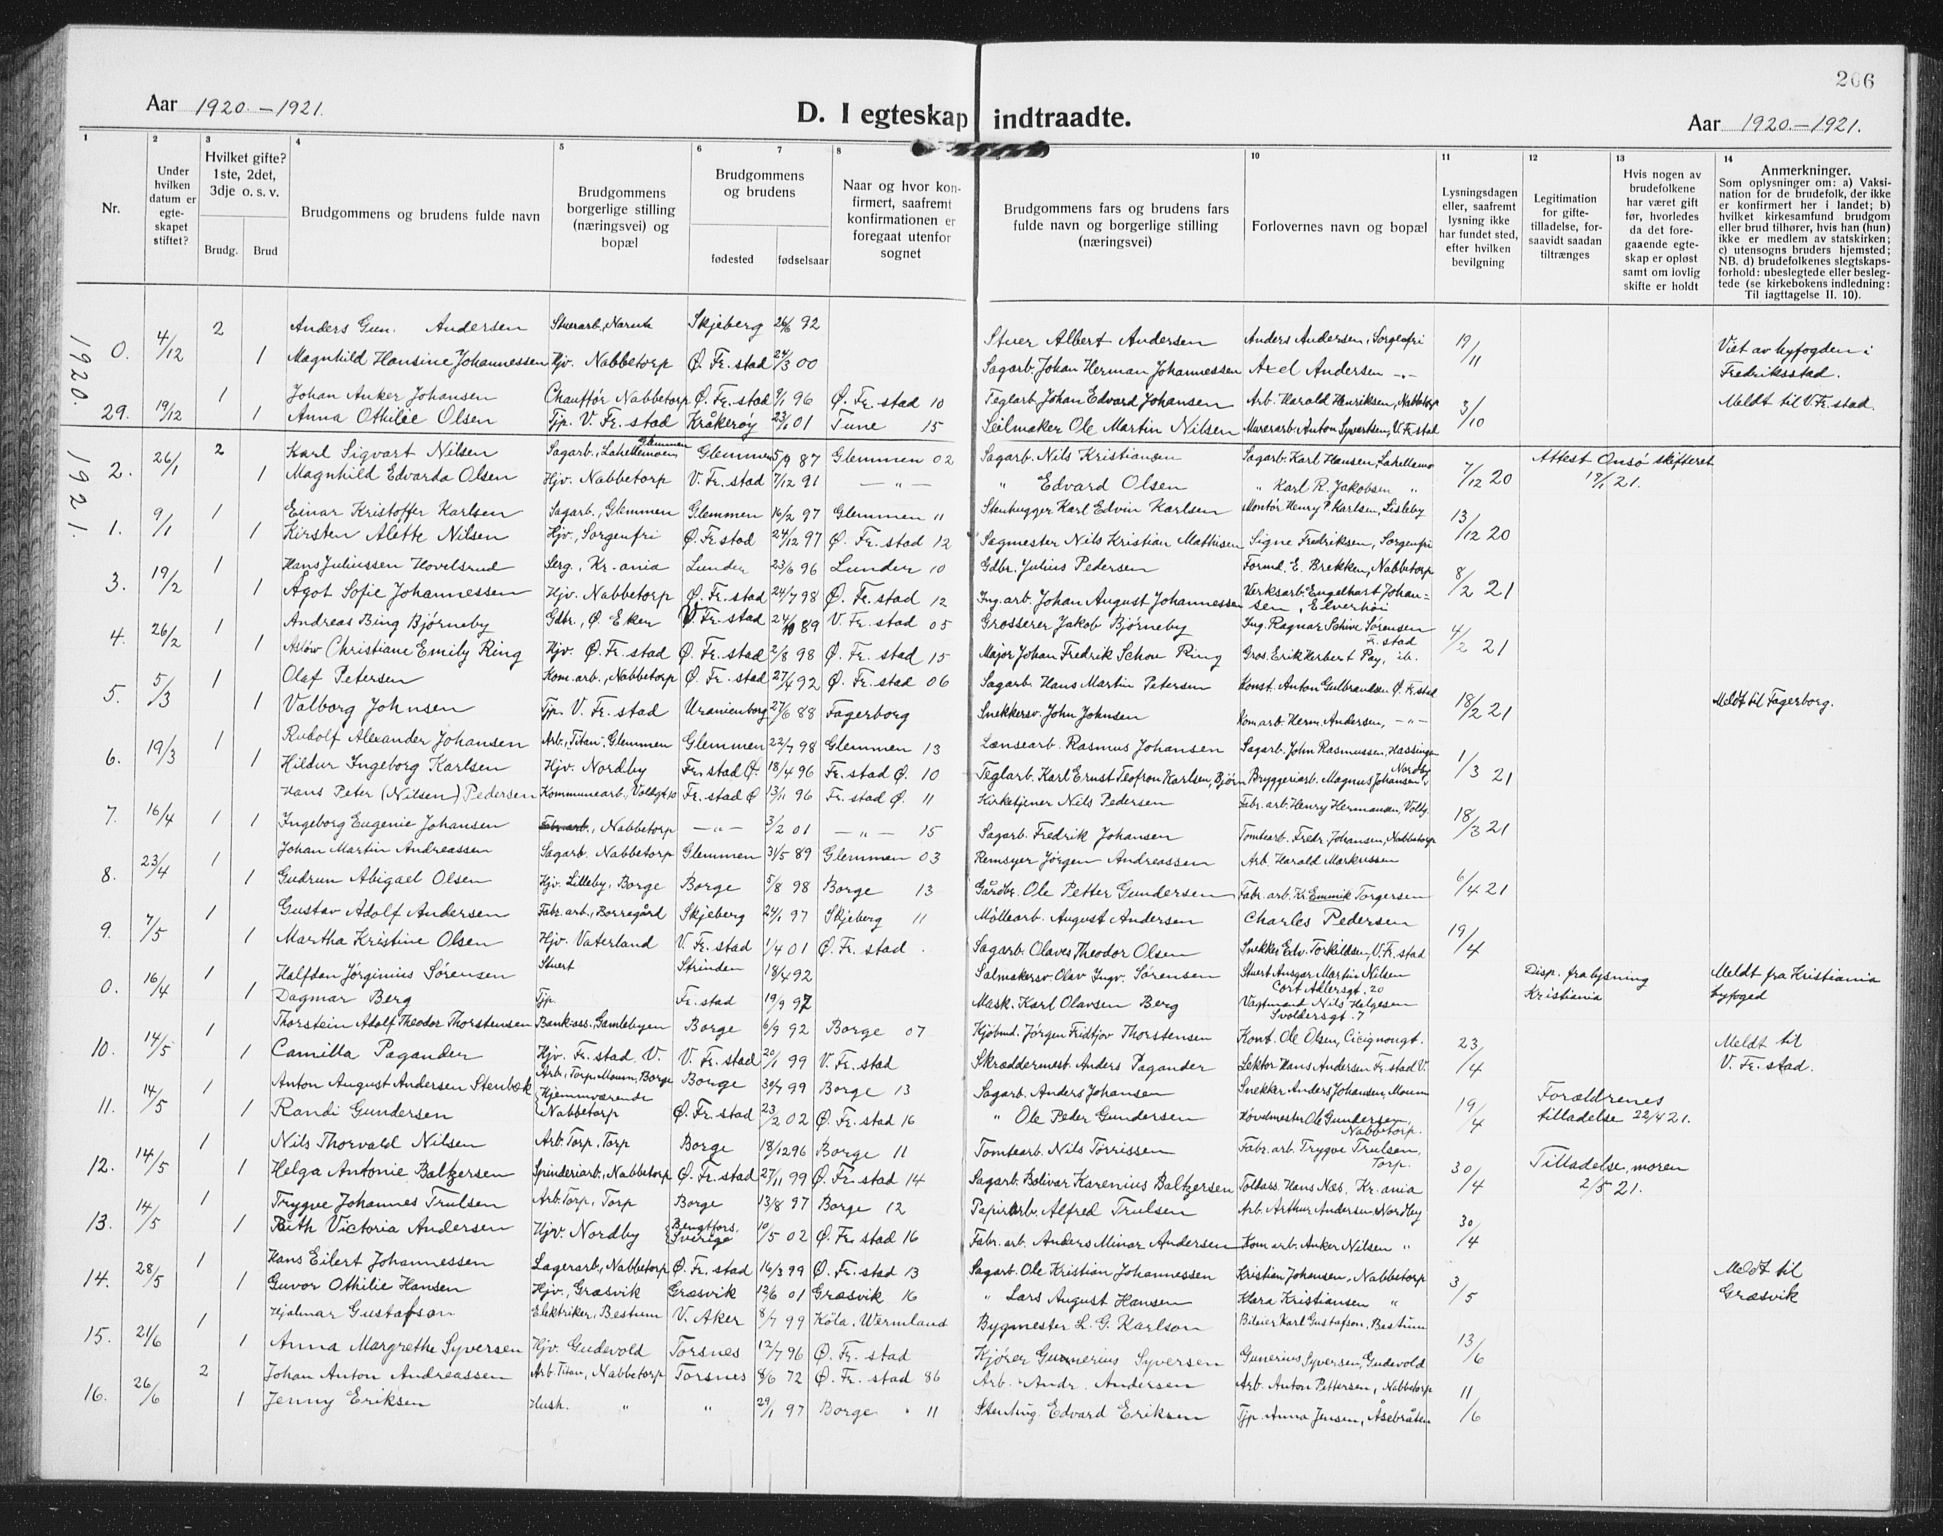 206
Aar 1920.–1921.
D. I egteskap indtraadte.
Aar 1920.–1921.
1 2 3 4 5 6 7 8 10 11 12 13 14
Nr.
Under hvilken datum er egteskapet stiftet?
Hvilket gifte? 1ste, 2det, 3dje o. s. v.
Brudg. Brud
Brudgommens og brudens fulde navn
Brudgommens borgerlige stilling (næringsvei) og bopæl
Brudgommens og brudens
fødested fødselsaar
Naar og hvor konfirmert, saafremt konfirmationen er foregaat utenfor sognet
Brudgommens fars og brudens fars fulde navn og borgerlige stilling (næringsvei)
Forlovernes navn og bopæl
Lysningsdagen eller, saafremt lysning ikke har fundet sted, efter hvilken bevilgning
Legitimation for giftetilladelse, forsaavidt saadan tiltrænges
Hvis nogen av brudefolkene har været gift før, hvorledes da det foregaaende egteskap er opløst samt om lovlig skifte er holdt
Anmerkninger.
Som oplysninger om: a) Vaksination for de brudefolk, der ikke er konfirmert her i landet; b) hvilket kirkesamfund brudgom eller brud tilhører, hvis han (hun) ikke er medlem av statskirken; c) utensogns bruders hjemsted; NB. d) brudefolkenes slegtskapsforhold: ubeslegtede eller beslegtede (se kirkebokens indledning: Til iagttagelse II. 10).
1920.
0. 4/12 2 Anders Gun. Andersen Skjeberg 26/6 92 Stuer Albert Andersen Anders Andersen, Sorgenfri 19/11
1 Magnhild Hansine Johannessen Hjv. Nabbetorp Ø. Fr. stad 24/3 00 Sagarb. Johan Herman Johannessen Axel Andersen –"– Viet av byfogden i Fredriksstad.
29. 19/12 1 Johan Anker Johansen Chauffør Nabbetorp Ø. Fr. stad 9/1 96 Ø. Fr. stad 10 Teglarb. Johan Edvard Johansen Arb. Harald Henriksen, Nabbetorp 3/10 Meldt til V. Fr. stad.
1 Anna Othilie Olsen Tjp. V. Fr. stad Kråkerøy 23/1 01 Tune 15 Seilmaker Ole Martin Nilsen Murerarb. Anton Syvertsen, V. Fr. stad
1921.
2. 26/1 2 Karl Sigvart Nilsen Sagarb., Lahellemoen Glemmen Glemmen 5/9 87 Glemmen 02 Sagarb. Nils Kristiansen Sagarb. Karl Hansen, Lahellemo 7/12 20 Attest Onsø skifteret 19/1 21.
1 Magnhild Edvarda Olsen Hjv. Nabbetorp V. Fr. stad 7/12 91 –"– " Edvard Olsen " Karl R. Jakobsen "
1. 9/1 1 Einar Kristoffer Karlsen Sagarb., Glemmen Glemmen 16/2 97 Glemmen 11 Stenhugger Karl Edvin Karlsen Montør Henry P. Karlsen, Lisleby 13/12 20
1 Kirsten Alette Nilsen Hjv., Sorgenfri Ø. Fr. stad 24/12 97 Ø. Fr. stad 12 Sagmester Nils Kristian Mathisen Signe Fredriksen, Sorgenfri
3. 19/2 1 Hans Juliussen Hovelsrud Serg., Kr.ania Lunder 23/6 96 Lunder 10 Gdbr. Julius Pedersen Formd. E. Brekken, Nabbetorp 8/2 21
1 Ågot Sofie Johannessen Hjv. Nabbetorp Ø. Fr. stad 24/7 98 Ø. Fr. stad 12 Ing.arb. Johan August Johannessen Verksarb. Engelhart Johansen, Elverhøi
4. 26/2 1 Andreas Bing Bjørneby Gdbr., Ø. Eker V. Fr. stad 24/10 89 V. Fr. stad 05 Grosserer Jakob Bjørneby Ing. Ragnar Schive Sørensen Fr. stad 4/2 21
1 Aslaw Christiane Emily Ring Hjv. Ø. Fr. stad Ø. Fr. stad 2/8 98 Ø. Fr. stad 15 Major Johan Fredrik Schou Ring Gros. Erik Herbert Pay, ib.
5. 5/3 1 Olaf Petersen Kom. arb., Nabbetorp Ø. Fr. stad 27/4 92 Ø. Fr. stad 06 Sagarb. Hans Martin Petersen Konst. Anton Gulbrandsen Ø. Fr. stad 18/2 21 Meldt til Fagerborg.
1 Valborg Johnsen Tjp. V. Fr. stad Uranienborg 27/6 88 Fagerborg Snekkersv. John Johnsen Kom arb. Herm. Andersen, –"–
6. 19/3 1 Rudolf Alexander Johansen Arb. "Titan", Glemmen Glemmen 22/7 98 Glemmen 13 Lænsearb. Rasmus Johansen Sagarb. John Rasmussen, Hassingen 1/3 21
1 Hildur Ingeborg Karlsen Hjv. Nordby Fr. stad Ø. 18/4 96 Fr. stad Ø. 10 Teglarb. Karl Ernst Teofron Karlsen, Bjørn Bryggeriarb. Magnus Johansen, Nordby
7. 16/4 1 Hans Peter (Nilsen) Pedersen Kommunearb., Voldgt 10 Fr. stad Ø 13/1 96 Fr. stad Ø. 11 Kirketjener Nils Pedersen Fabr. arb. Henry Hermansen, Voldg. 18/3 21
1 Ingeborg Eugenie Johansen Fabr.arb., Nabbetorp –"– 3/2 01 –"– 15 Sagarb. Fredrik Johansen Tomtearb. Fredr. Johansen, Nabbetorp
8. 23/4 1 Johan Martin Andreassen Sagarb. Nabbetorp Glemmen 31/5 89 Glemmen 03 Remsyer Jørgen Andreassen Arb. Harald Markussen 6/4 21
1 Gudrun Abigael Olsen Hjv. Lilleby, Borge Borge 5/8 98 Borge 13 Gårdbr. Ole Petter Gundersen Fabr. arb. Kr. Emmik Torgersen
9. 7/5 1 Gustav Adolf Andersen Fabr. arb., Borregård Skjeberg 24/1 97 Skjeberg 11 Møllearb. August Andersen Charles Pedersen 19/4
1 Martha Kristine Olsen Hjv. Vaterland V. Fr. stad 1/4 01 Ø. Fr. stad . Sagarb. Olaves Theodor Olsen Snekker Edv. Torkildsen, V. Fr. stad
0. 16/4 1 Halfdan Jørginius Sørensen Stuert Strinden 18/4 92 Salmakersv. Olav Ingv. Sørensen Stuert Ansgar Martin Nilsen Cort Adlersgt. 20 Disp. fra lysning Kristiania Meldt fra Kristiania byfoged
1 Dagmar Berg Tjp. Fr. stad 19/9 97 Mask. Karl Olavsen Berg Vagtmand Nils Helgesen Svoldersgt. 7
10. 14/5 1 Thorstein Adolf Theodor Thorstensen Bankass. Gamlebyen Borge 6/9 92 Borge 07 Kjøbmd. Jørgen Fridtjov Thorstensen Kont. Ole Olsen, Cicignongt. 23/4 Meldt til V. Fr. stad.
1 Camilla Pagander Hjv. Fr. stad V. V. Fr. stad 20/1 99 V. Fr. stad Skræddermest. Anders Pagander Lektor Hans Andersen Fr. stad V.
11. 14/5 1 Anton August Andersen Stenbæk Arb., Torp Moum, Borge Borge 30/7 99 Borge 13 Sagarb. Anders Johansen Snekker Anders Johansen, Moum 19/4 Forældrenes tilladelse 22/4 21.
1 Randi Gundersen Hjemmværende Nabbetorp Ø. Fr. stad 23/2 02 Ø. Fr. stad 16 " Ole Peder Gundersen Høvelmester Ole Gundersen, Nabbetorp.
12. 14/5 1 Nils Thorvald Nilsen Arb. Torp, Torp Borge 18/12 96 Borge 11 Tomtearb. Nils Torrissen Fabr. arb. Trygve Trulsen, Torp. 30/4 Tilladelse, moren 2/5 21.
1 Helga Antonie Baltzersen Spinderiarb., Nabbetorp Ø. Fr. stad 27/11 99 Ø. Fr. stad 14 Sagarb. Bolivar Karenius Baltzersen Toldass. Hans Næs, Kr.ania
13. 14/5 1 Trygve Johannes Trulsen Arb. Torp, Torp Borge 13/8 97 Borge 12 Papirarb. Alfred Trulsen Arb. Arthur Andersen, Nordby 30/4
1 Ruth Victoria Andersen Hjv. Nordby Bengtfors, Sverige 10/5 02 Ø. Fr. stad 16 Fabr. arb. Anders Minar Andersen Kom arb. Anker Nilsen "
14. 28/5 1 Hans Eilert Johannessen Lagerarb., Nabbetorp Ø. Fr. stad 16/3 99 Ø. Fr. stad 13 Sagarb. Ole Kristian Johannessen Kristian Johansen, Nabbetorp 3/5 Meldt til Græsvik
1 Guvor Othilie Hansen Hjv., Græsvik Græsvik 12/6 01 Græsvik 16 " Lars August Hansen Klara Kristiansen "
15. 21/6 1 Hjalmar Gustafson Elektriker, Bestum V. Aker 8/7 99 Köla, Wermland Bygmester L. G. Karlson Bileier Karl Gustafson, Bestum 13/6
1 Anna Margrethe Syversen Hjv. Gudevold Torsnes 12/7 96 Ø. Fr. stad Kjører Gunnerius Syversen Gunerius Syversen, Gudevold
16. 26/6 2 Johan Anton Andreassen Arb Titan, Nabbetorp Torsnes 8/6 72 Ø. Fr. stad 86 Arb. Andr. Andersen Arb. Anton Pettersen, Nabbetorp 11/6
1 Jenny Eriksen Hush. " " 29/1 97 Borge " 11 Stenhug. Edvard Eriksen Tjp. Anna Jensen, Åsebråten